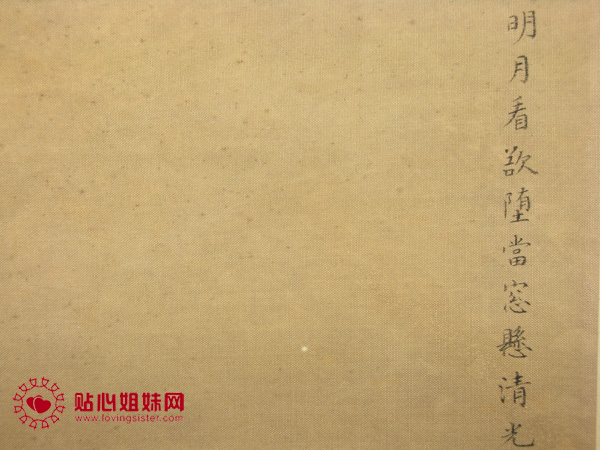 明月看欲堕當窓懸清光
贴心姐妹网
www.lovingsister.com